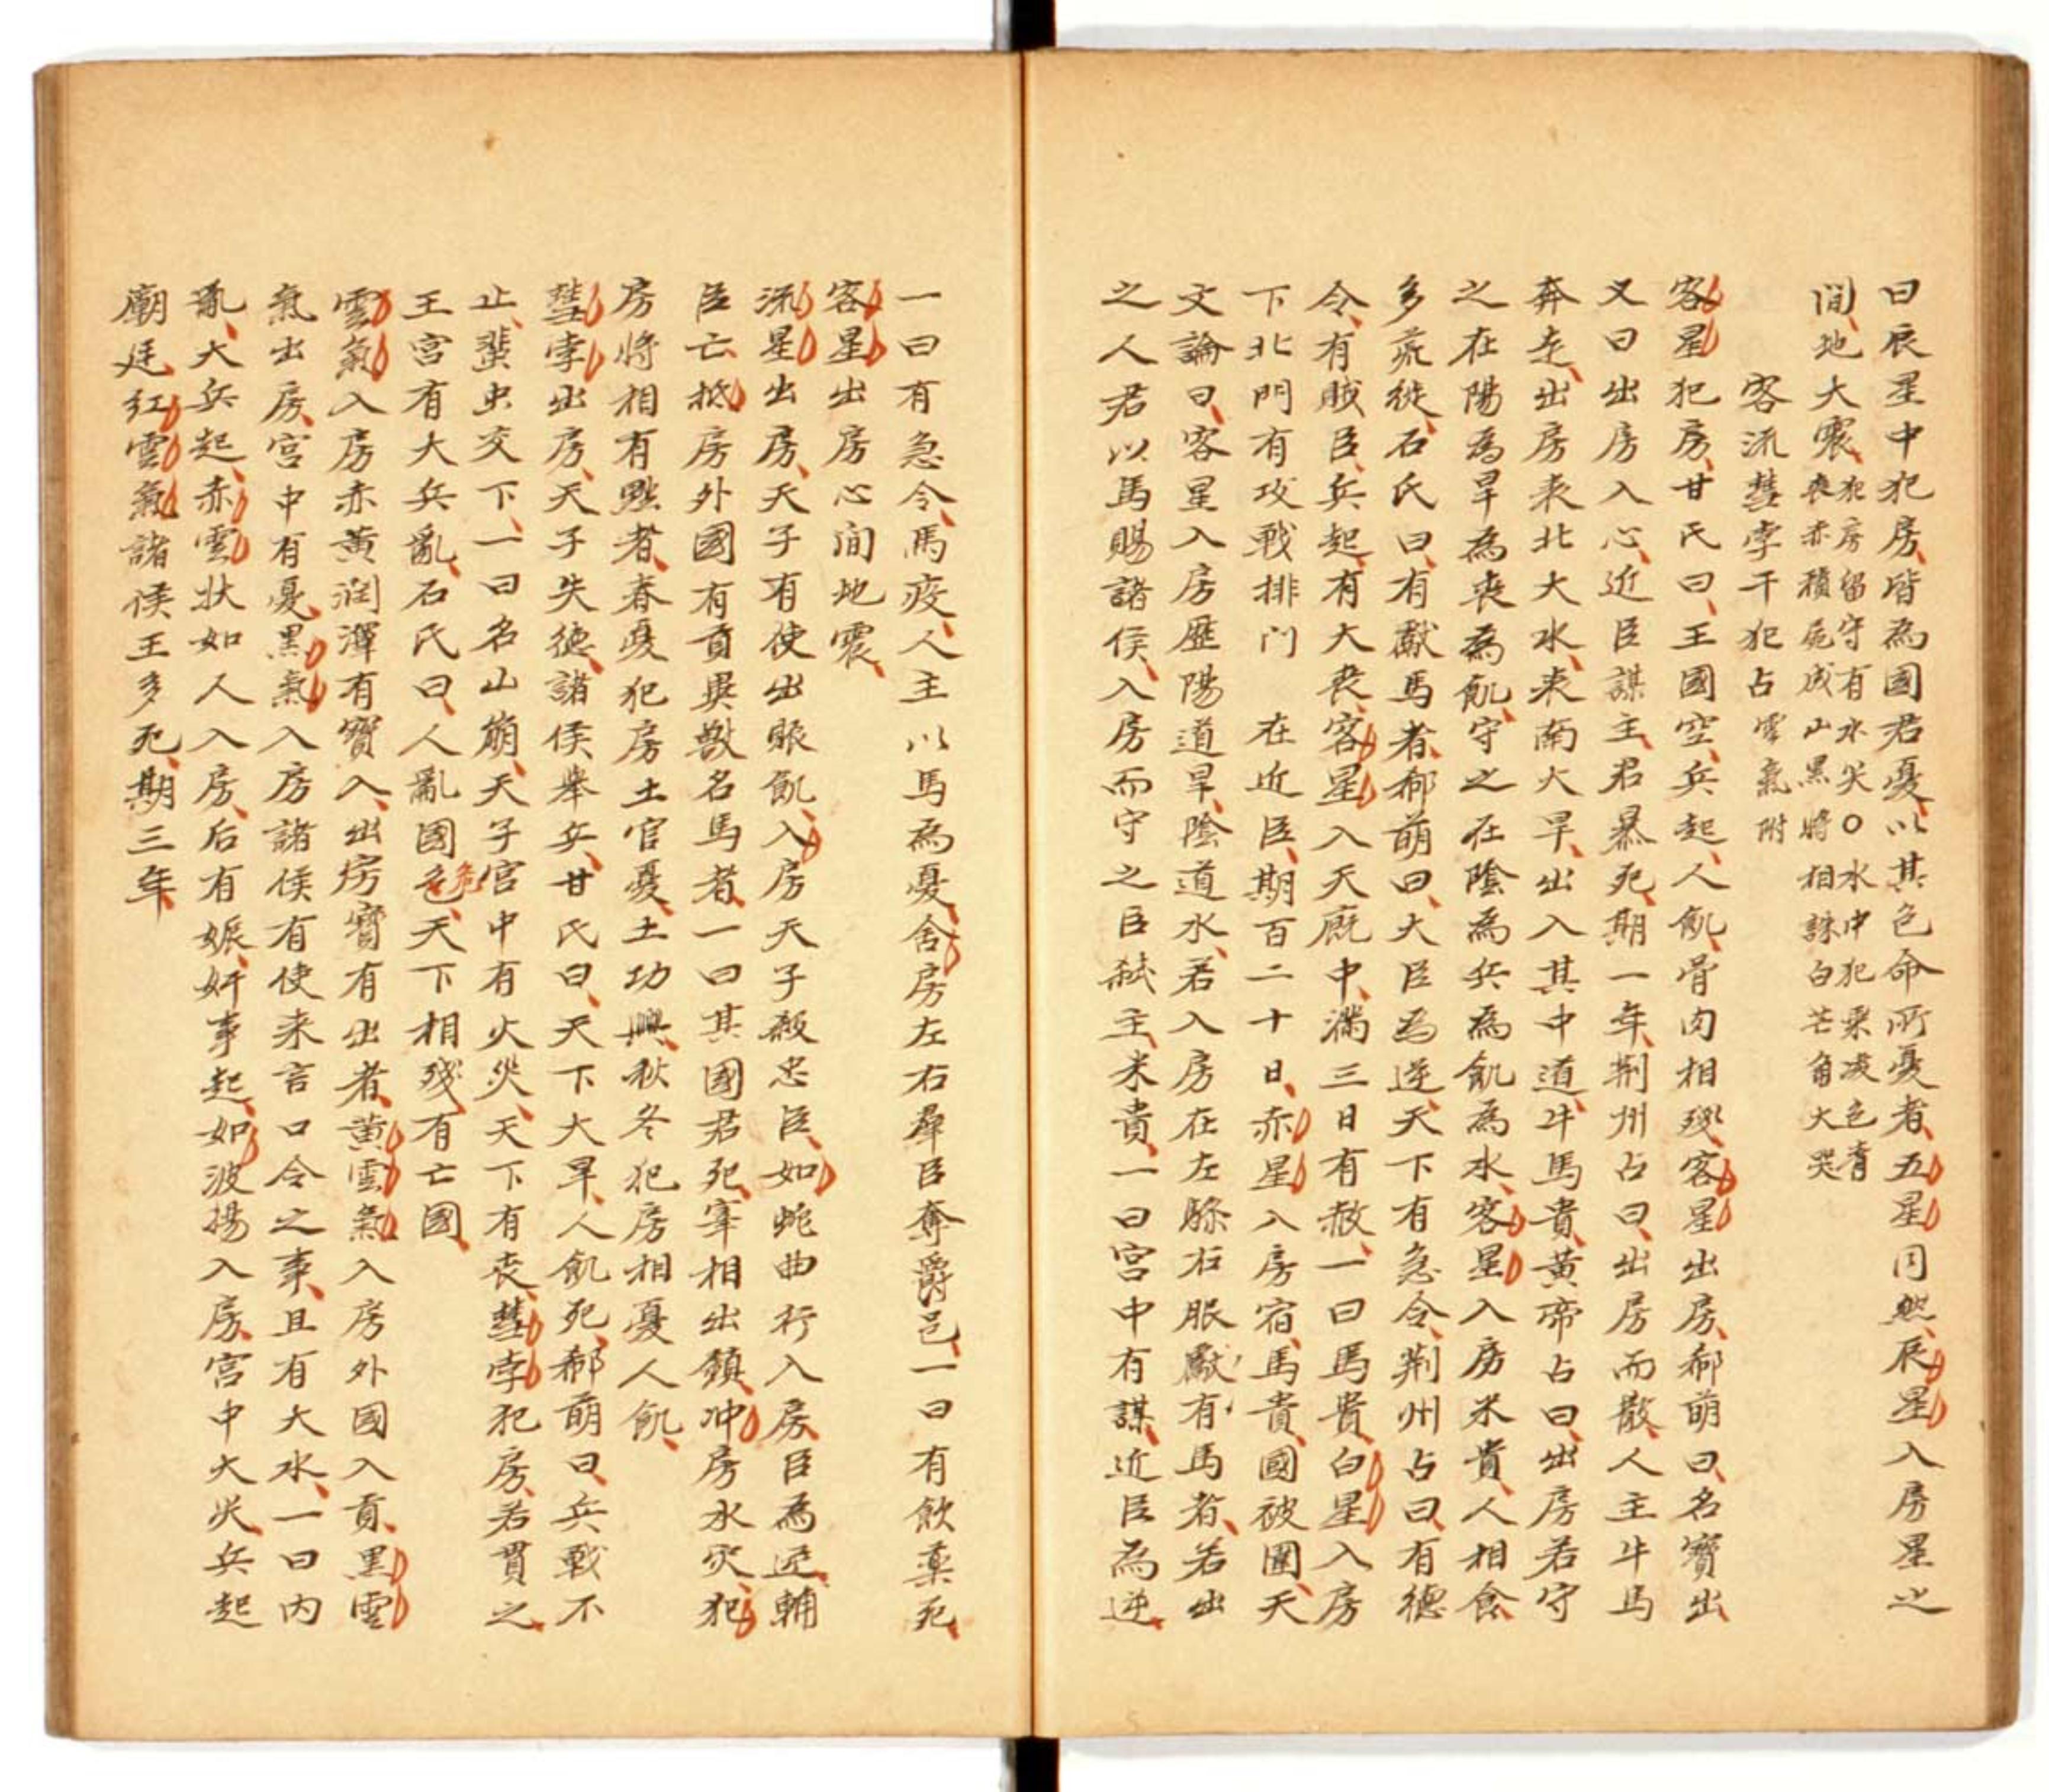 曰辰星中犯房皆為國君憂以其色命所憂者五星同然辰星入房星之
間地大震犯房留守有水災○水中犯乘凌色青
喪赤積屍成山黑將相誅白芒角大哭
客流彗孛干犯占雲氣附
客星犯房甘氏曰王國空兵起人飢骨肉相殘客星出房郗萌曰名寶出
又曰出房入心近臣謀主君暴死期一年荆州占曰出房而散人主牛馬
奔走出房來北大水來南大旱出入其中道牛馬貴黃帝占曰出房若守
之在陽為旱為喪為飢守之在陰為兵為飢為水客星入房米貴人相食
多死徙石氏曰有獻馬者郗萌曰大臣為逆天下有急令荆州占曰有德
令有賊臣兵起有大喪客星入天廐中滿三日有赦一曰馬貴白星入房
下北門有攻戰排门 在近臣期百二十日赤星入房宿馬貴國被圍天
文論曰客星入房歷陽道旱陰道水若入房在左驂右服獻有馬者若出
之人君以馬賜諸侯入房而守之臣弒主米貴一曰宮中有謀近臣為逆
一曰有急令馬疫人主以馬為憂舍房左右羣臣奪爵邑一曰有飲藥死
客星出房心间地震
流星出房天子有使出賑飢入房天子殺忠臣如蛇曲行入房臣為逆輔
臣亡抵房外國有貢異獸名馬者一曰其國君死宰相出鎮冲房水災犯
房將相有黜者春夏犯房土官憂土功興秋冬犯房相憂人飢
彗孛出房天子失德諸侯舉兵甘氏曰天下大旱人飢死郗萌曰兵戰不
止蜚虫交下一曰名山崩天子宮中有火災天下有喪彗孛犯房若貫之
王宮有大兵亂石氏曰人亂國危天下相殘有亡國
雲氣入房赤黃润澤有寶入出房寶有出者黃雲氣入房外國入貢黑雲
氣出房宮中有憂黑氣入房諸侯有使来言口令之事且有大水一曰内
亂大兵起赤雲狀如人入房后有娠奸事起如波揚入房宮中大災兵起
廟廷紅雲氣諸侯王多死期三年